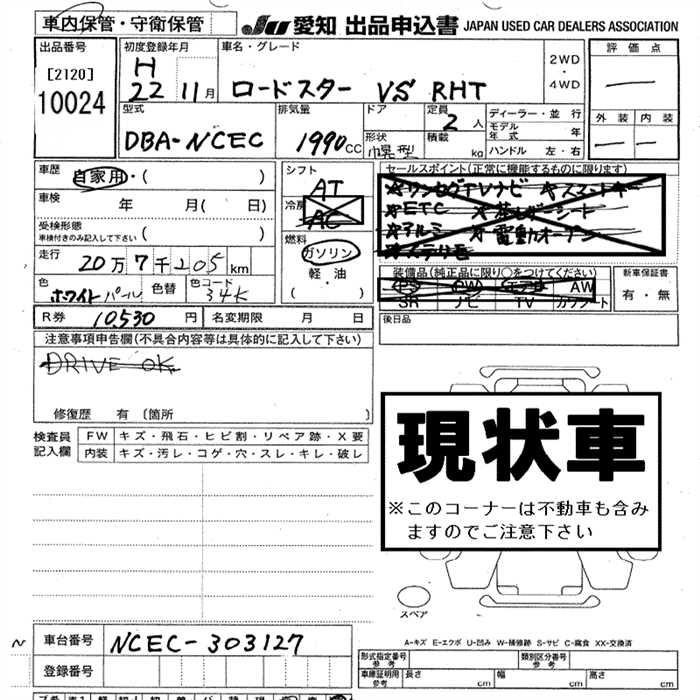 車内保管・守衛保管
JU 愛知 出品申込書 JAPAN USED CAR DEALERS ASSOCIATION
出品番号
[2120]
10024
初度登録年月
H
22 11月
車名・グレード
ロードスター VS RHT
2WD
・
4WD
評価点
外装 内装
型式
DBA-NCEC
排気量
1990cc
ドア
形状
幌型
定員
2人
積載
kg
ディーラー・並行
モデル年式 年
ハンドル 左・右
車歴
自家用・( )
車検 年 月( 日)
受検形態
車検付きのみ記入して下さい ( )
走行
20万7千205km
色
ホワイトパール
色替
色コード
34K
シフト
AT
冷房
AC
燃料
ガソリン
軽・油
( )
セールスポイント(正常に機能するものに限ります)
☆ワンセグTVナビ ☆スマートキー
☆ETC ☆革レザーシート
☆アルミ ☆電動オープン
☆ステリモ
装備品(純正品に限り○をつけてください)
PS PW エアB AW
SR ナビ TV カワシート
新車保証書
有・無
R券 10,530円 名変期限 月 日
後日品
注意事項申告欄(不具合内容等は具体的に記入して下さい)
DRIVE OK
修復歴 有〔箇所 〕
検査員記入欄
FW キズ・飛石・ヒビ割・リペア跡・X要
内装 キズ・汚レ・コゲ・穴・スレ・キレ・破レ
現状車
※このコーナーは不動車も含み
ますのでご注意下さい
スペア
A-キズ E-エクボ U-凹み W-補修跡 S-サビ C-腐食 XX-交換済
車台番号 NCEC-303127
登録番号
型式指定番号 参考
類別区分番号 参考
車庫証明用 参考 長さ cm 幅 cm 高さ cm